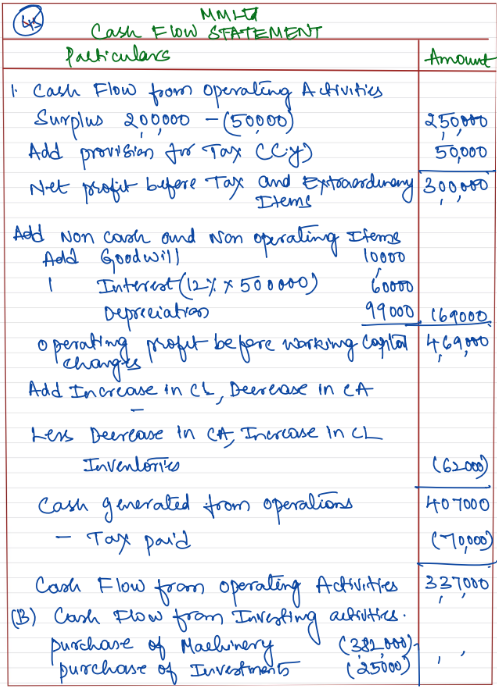 45
MM Ltd
Cash Flow STATEMENT
Particulars Amount
1. Cash Flow from Operating Activities
Surplus 200,000 - (50,000) 250,000
Add provision for Tax (C.y) 50,000
Net profit before Tax and Extraordinary Items 300,000
Add Non cash and Non operating Items
Add Goodwill 10000
Interest (12% x 500000) 60000
Depreciation 99000 169000
Operating profit before working Capital changes 469,000
Add Increase in CL, Decrease in CA
-
Less Decrease in CA, Increase in CL
Inventories (62000)
Cash generated from operations 407000
- Tax paid (70,000)
Cash Flow from Operating Activities 337,000
(B) Cash Flow from Investing activities.
purchase of Machinery (382,000)
purchase of Investments (25000) , ,